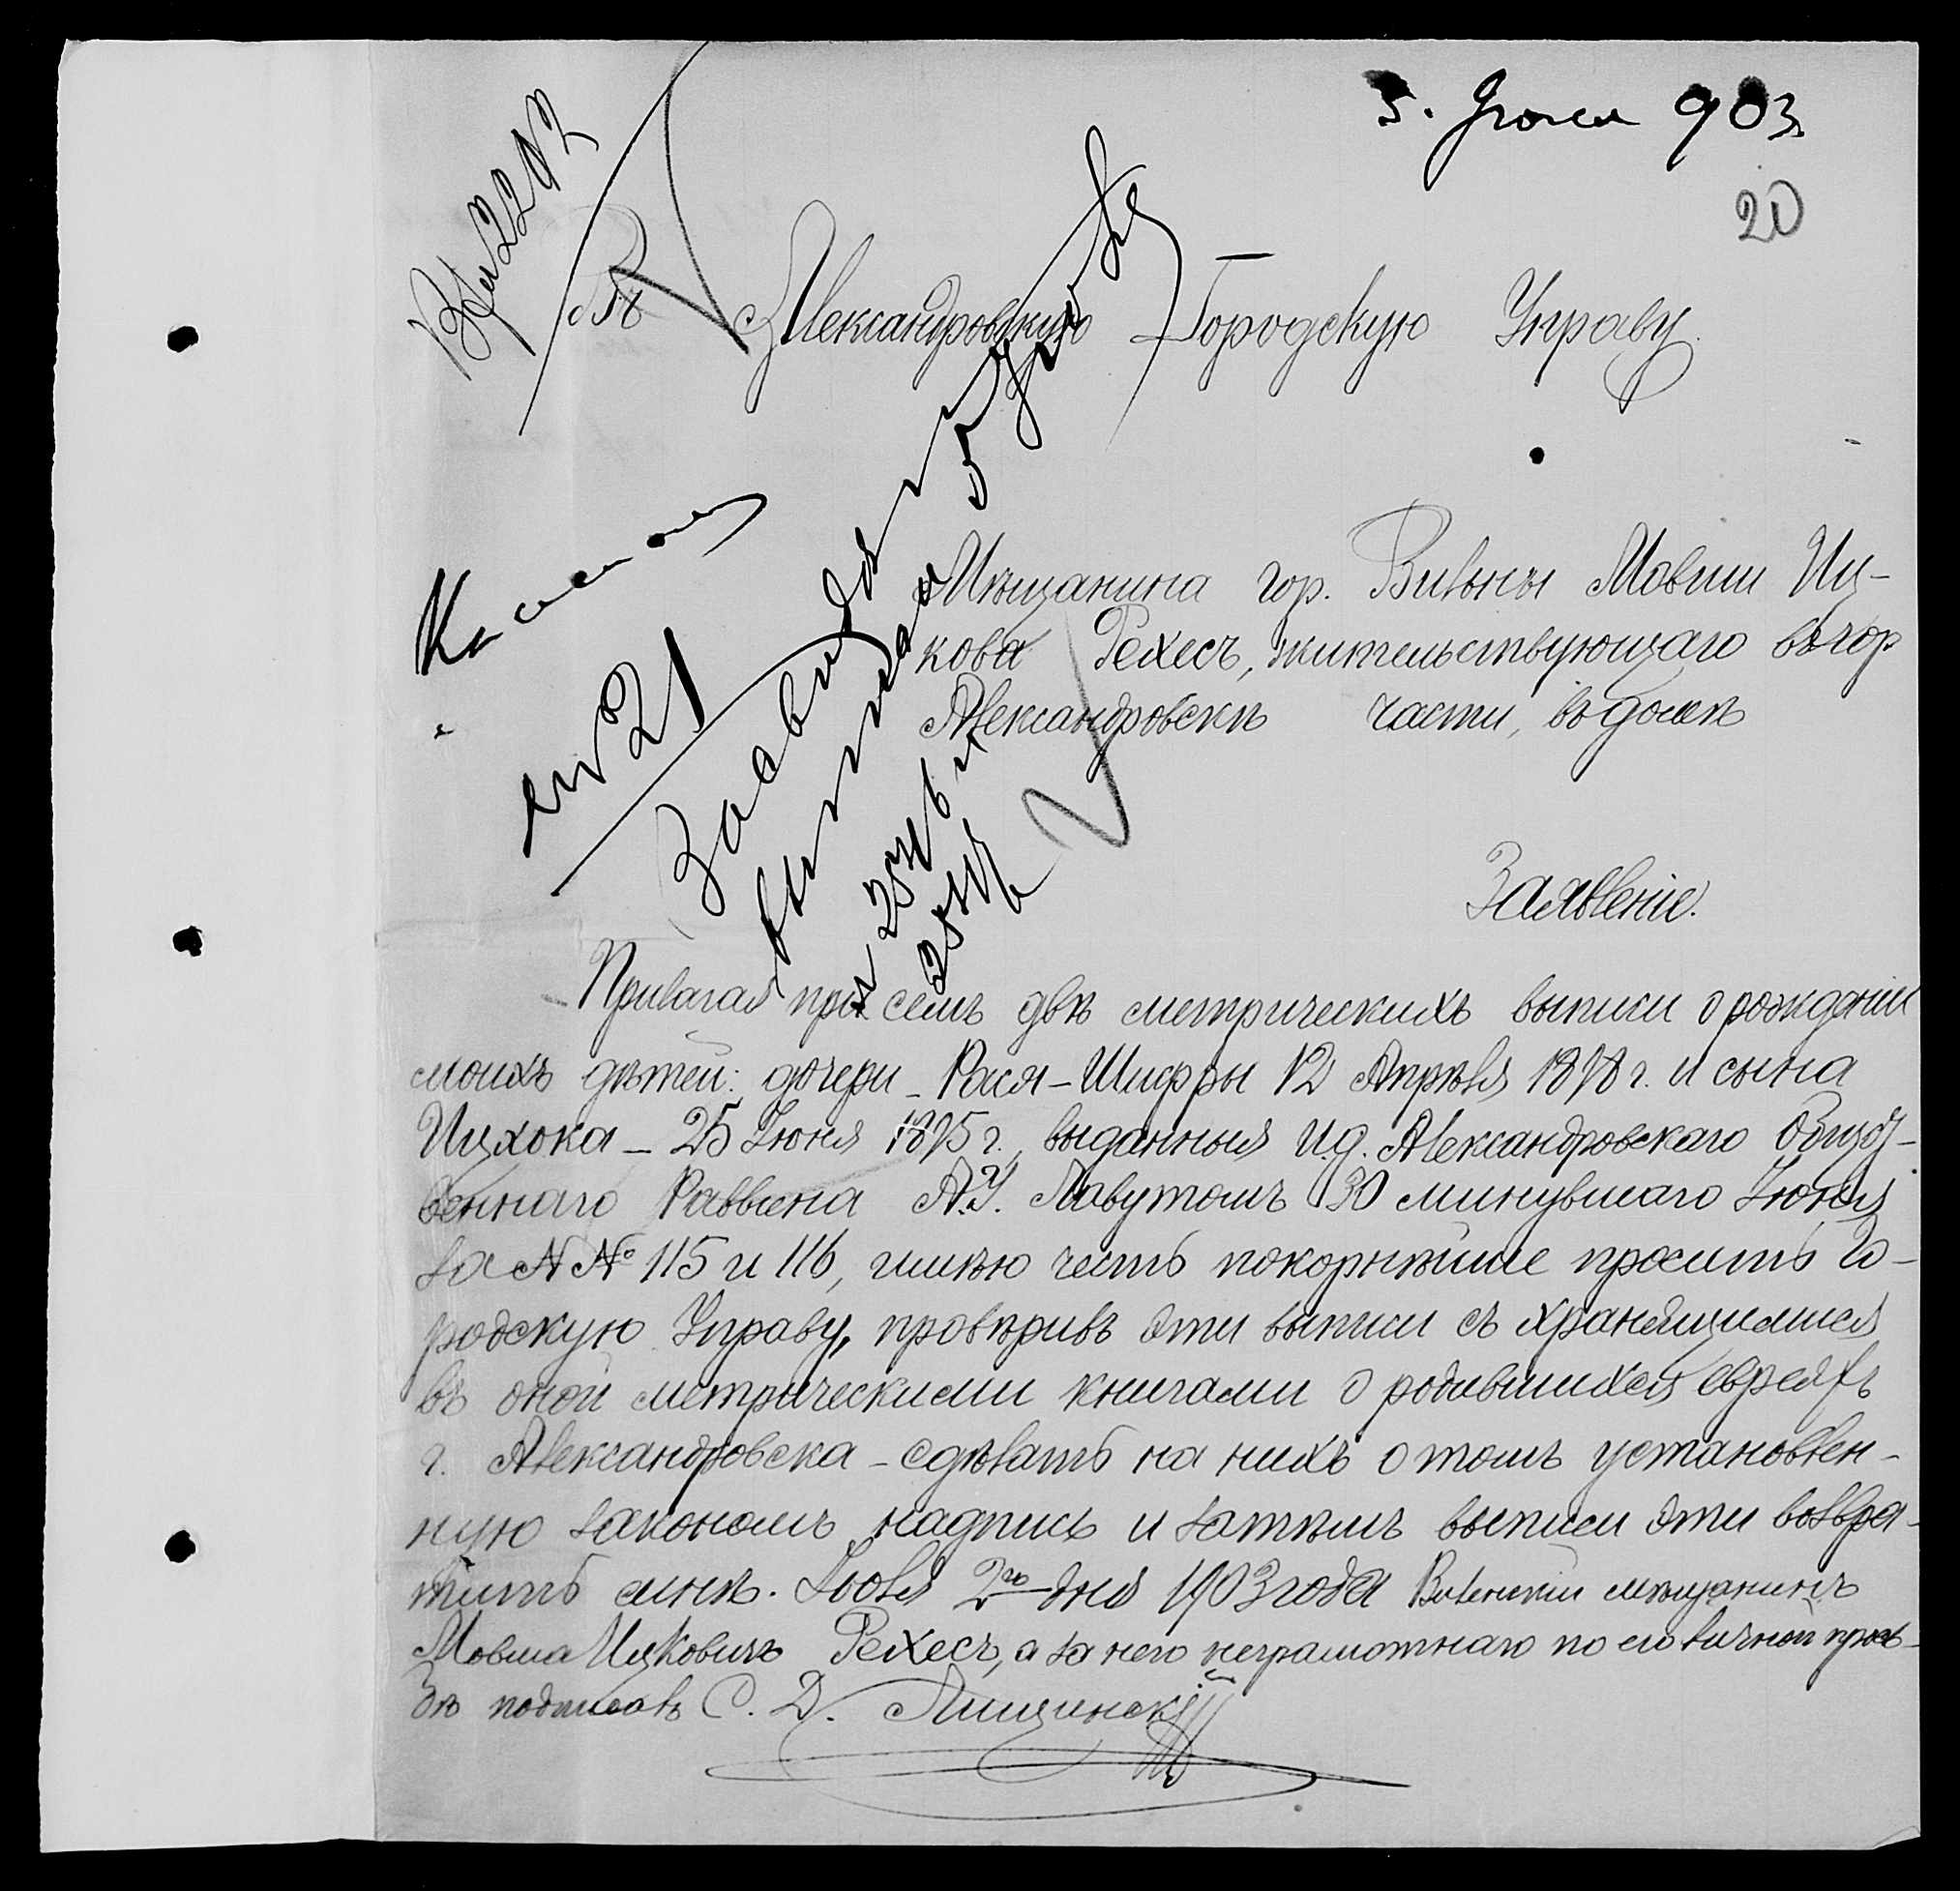 5. Июля 903
20
Вх 2202
Въ Александровскую Городскую Управу.
№ 21
Мѣщанина гор. Вильны Мовши Иц-
кова Рехесъ, жительствующаго въ гор
Александровскѣ части, въ домѣ
Засвидѣ
5 Июля
Заявленіе.
Прилагая при семъ двѣ метрическихъ выписи о рожденіи
моихъ дѣтей: дочери - Рася-Шифры 12 Апрѣля 1898 г. и сына
Ицхока - 25 Іюня 1895 г., выданныя И.д. Александровскаго Общест-
веннаго Раввина А.У. Лавутомъ 30 минувшаго Іюня
за №№ 115 и 116, имѣю честь покорнѣйше просить Го-
родскую Управу, провѣривъ эти выписи съ хранящимися
въ оной метрическими книгами о родившихся евреяхъ
г. Александровска - сдѣлать на нихъ о томъ установлен-
ную закономъ надпись и затѣмъ выписи эти возвра-
тить мнѣ. Іюля 2го дня 1903 года Виленскій мѣщанинъ
Мовша Ицковичъ Рехесъ, а за него неграмотнаго по его личной прось-
бѣ подписалъ С. Д. Лищинскій